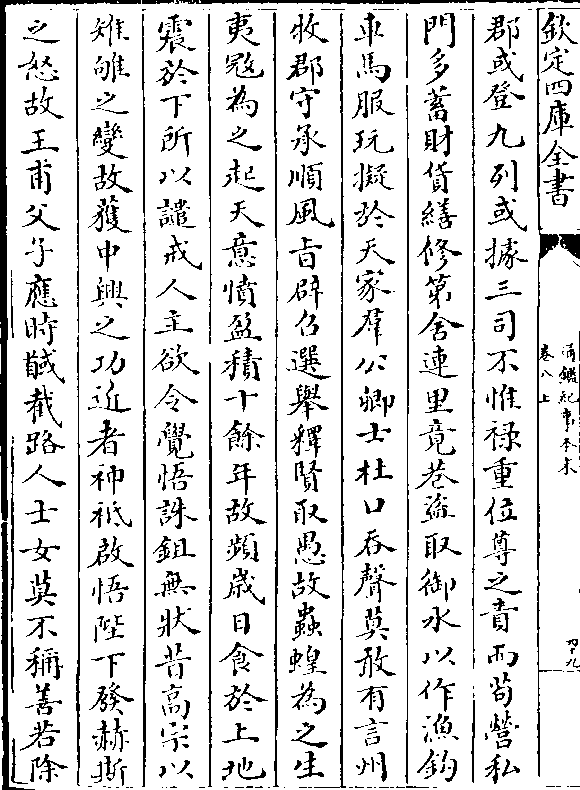 欽定四庫全書
通鑑紀事本末
卷八上
郡或登九列或據三司不惟禄重位尊之責而苟營私
門多蓄財貨繕修第舍連里竟巷盜取御水以作漁釣
車馬服玩擬於天家羣公卿士杜口吞聲莫敢有言州
牧郡守承順風旨辟召選舉釋賢取愚故蟲蝗為之生
夷冦為之起天意憤盈積十餘年故頻歲日食於上地
震於下所以譴戒人主欲令覺悟誅鉏無狀昔高宗以
雉雊之變故獲中興之功近者神祗啟悟陛下發赫斯
之怒故王甫父子應時馘截路人士女莫不稱善若除